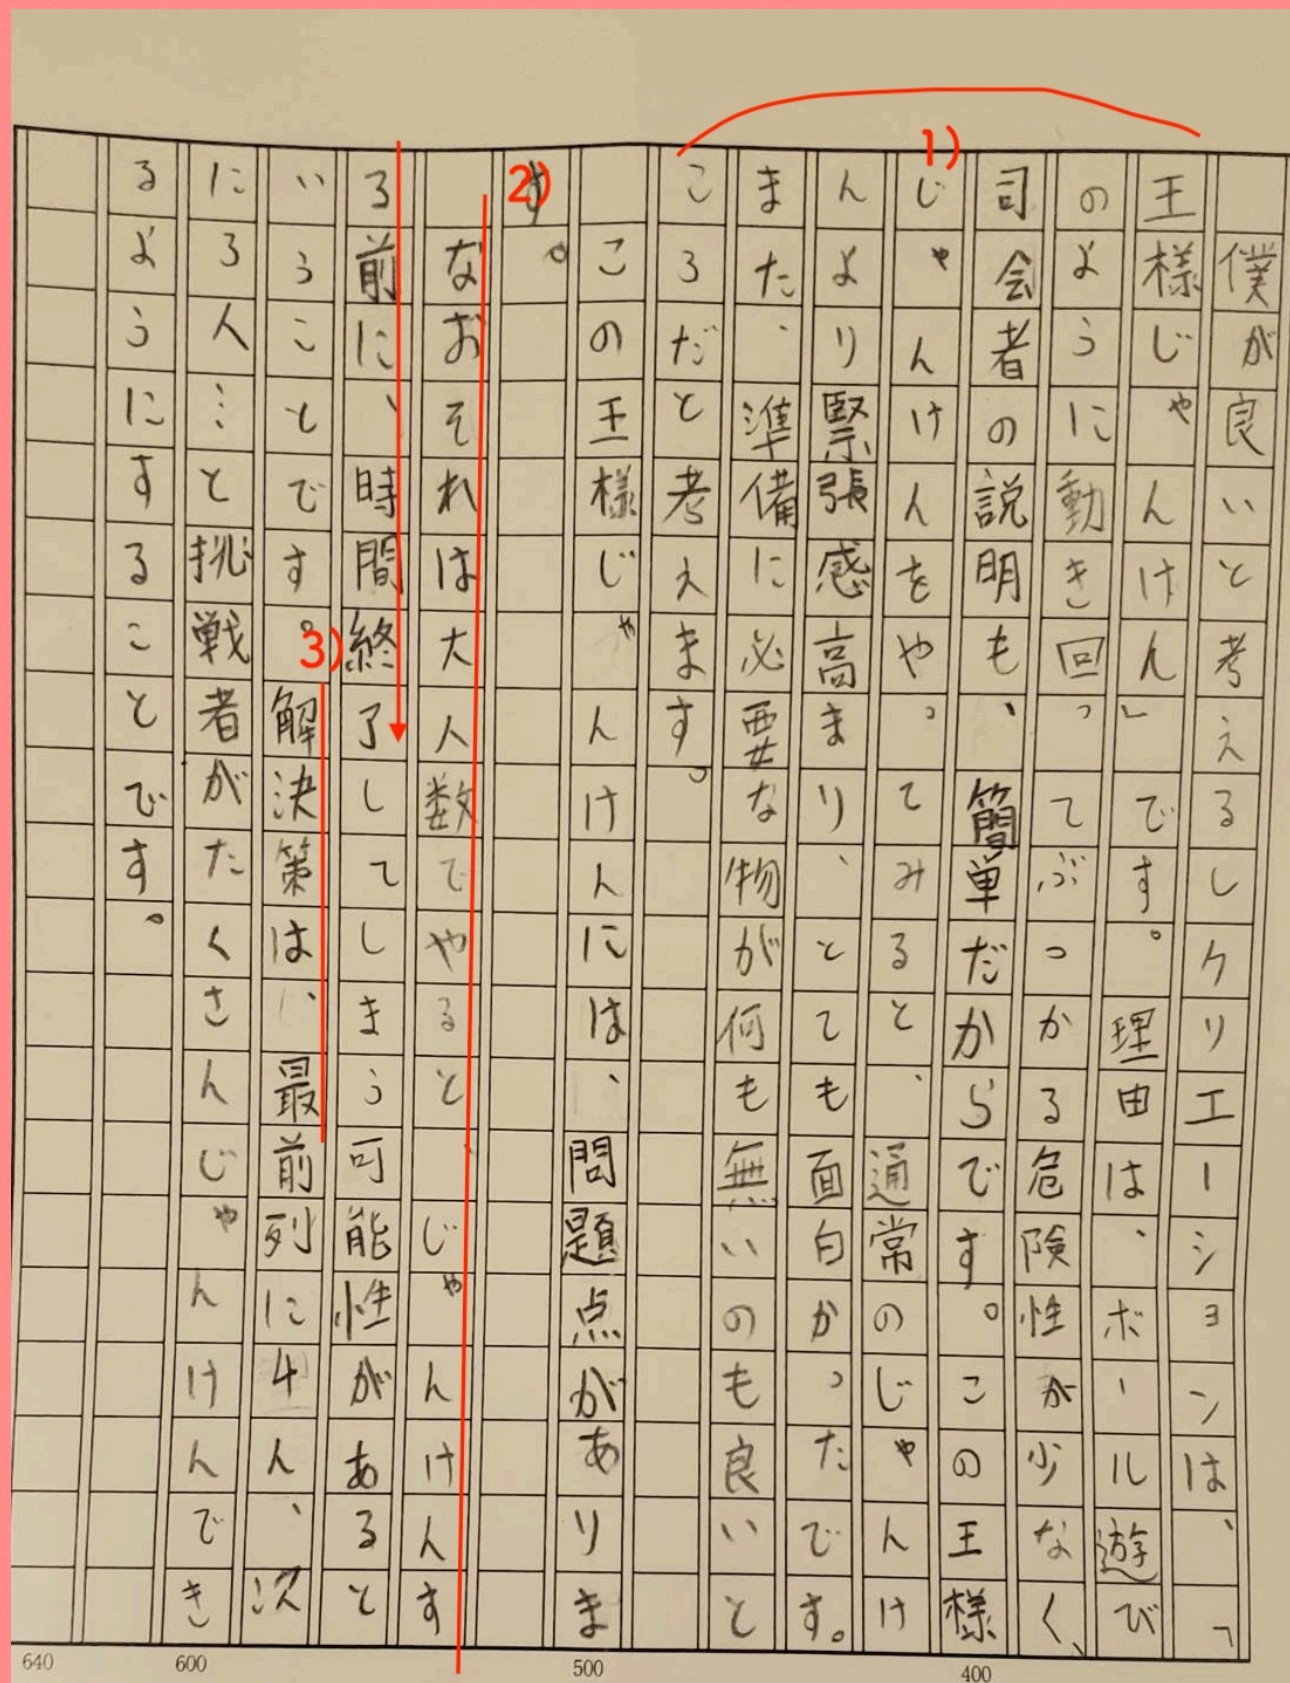 僕が良いと考えるレクリエーションは、「
王様じゃんけん」です。理由は、ボール遊び
のように動き回ってぶつかる危険性が少なく、
司会者の説明も、簡単だからです。この王様
じゃんけんをやってみると、通常のじゃんけ
んより緊張感高まり、とても面白かったです。
また、準備に必要な物が何も無いのも良いと
ころだと考えます。
この王様じゃんけんには、問題点がありま
す。
なおそれは大人数でやるとじゃんけんす
る前に、時間終了してしまう可能性があると
いうことです。解決策は、最前列に4人、次
に3人…と挑戦者がたくさんじゃんけんでき
るようにすることです。
1)
2)
3)
400
500
600
640